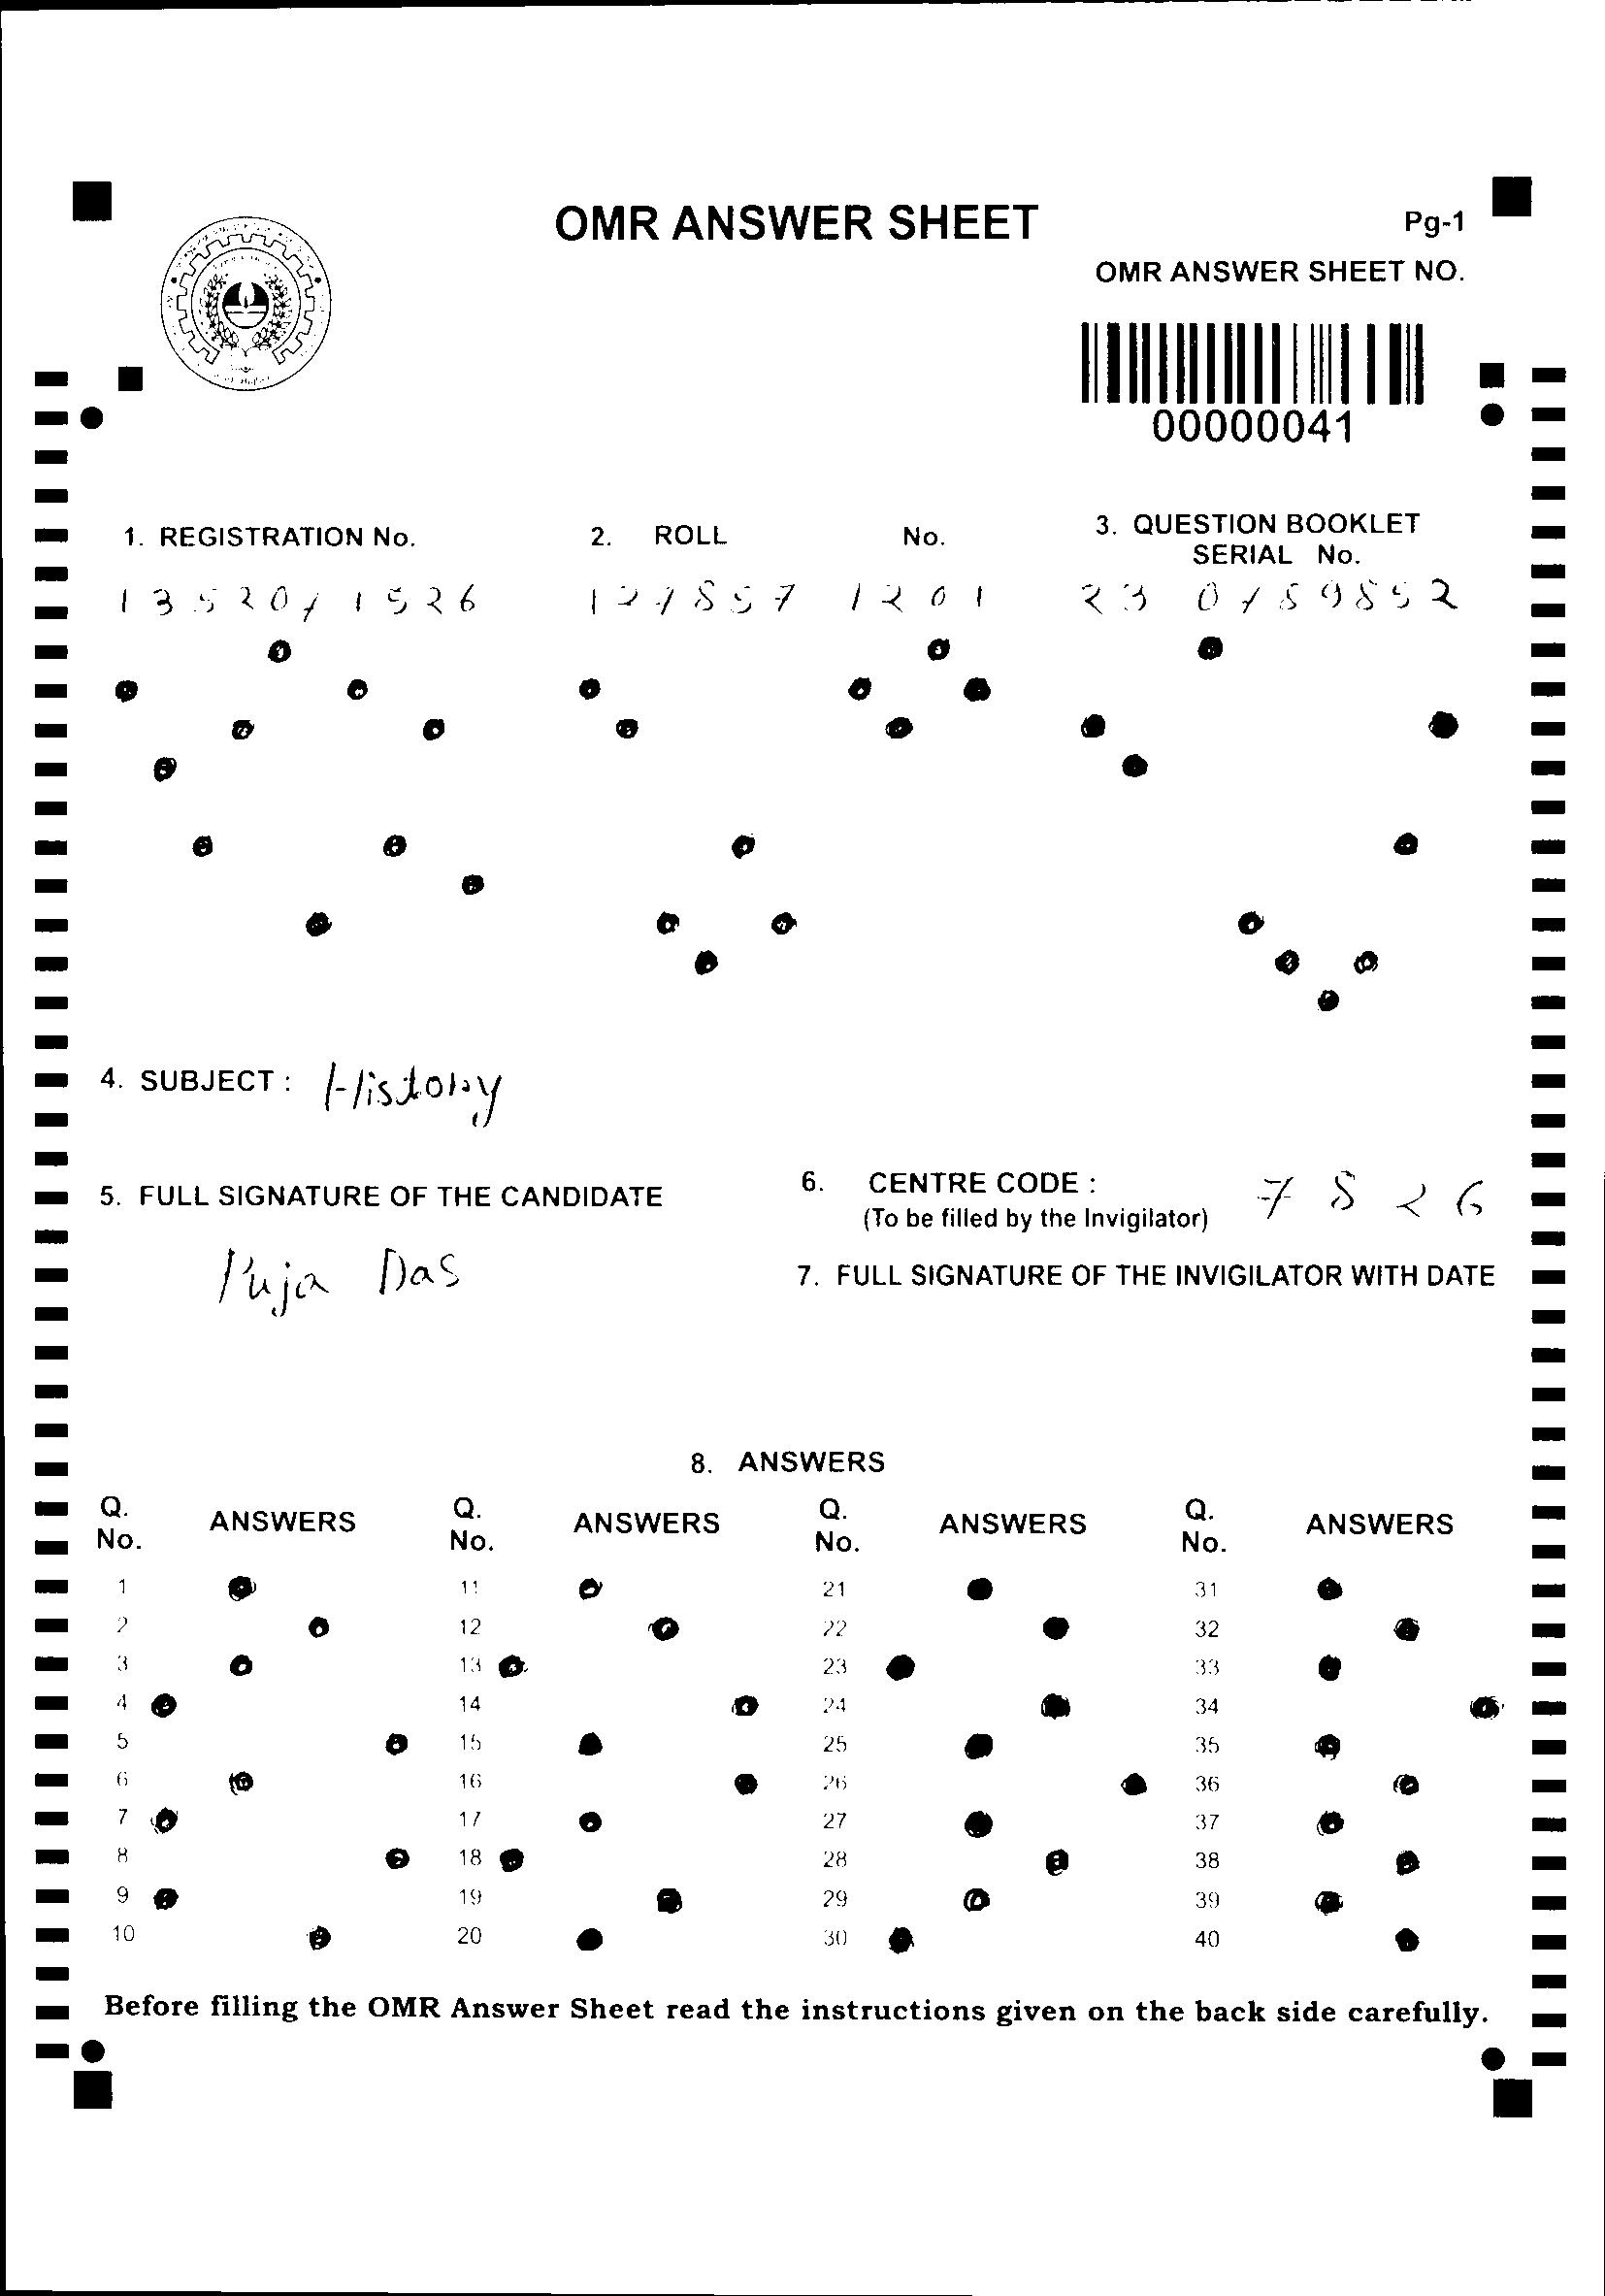 OMR ANSWER SHEET
Pg-1
OMR ANSWER SHEET NO.
00000041
1. REGISTRATION No. 2. ROLL No. 3. QUESTION BOOKLET
SERIAL No.
1 3 5 2 0 7 1 5 2 6 1 2 7 8 5 7 1 2 0 1 2 3 0 7 8 9 8 5 2
4. SUBJECT : History
5. FULL SIGNATURE OF THE CANDIDATE
Puja Das
6. CENTRE CODE : 7 8 2 6
(To be filled by the Invigilator)
7. FULL SIGNATURE OF THE INVIGILATOR WITH DATE
8. ANSWERS
Q. No. ANSWERS Q. No. ANSWERS Q. No. ANSWERS Q. No. ANSWERS
1 11 21 31
2 12 22 32
3 13 23 33
4 14 24 34
5 15 25 35
6 16 26 36
7 17 27 37
8 18 28 38
9 19 29 39
10 20 30 40
Before filling the OMR Answer Sheet read the instructions given on the back side carefully.